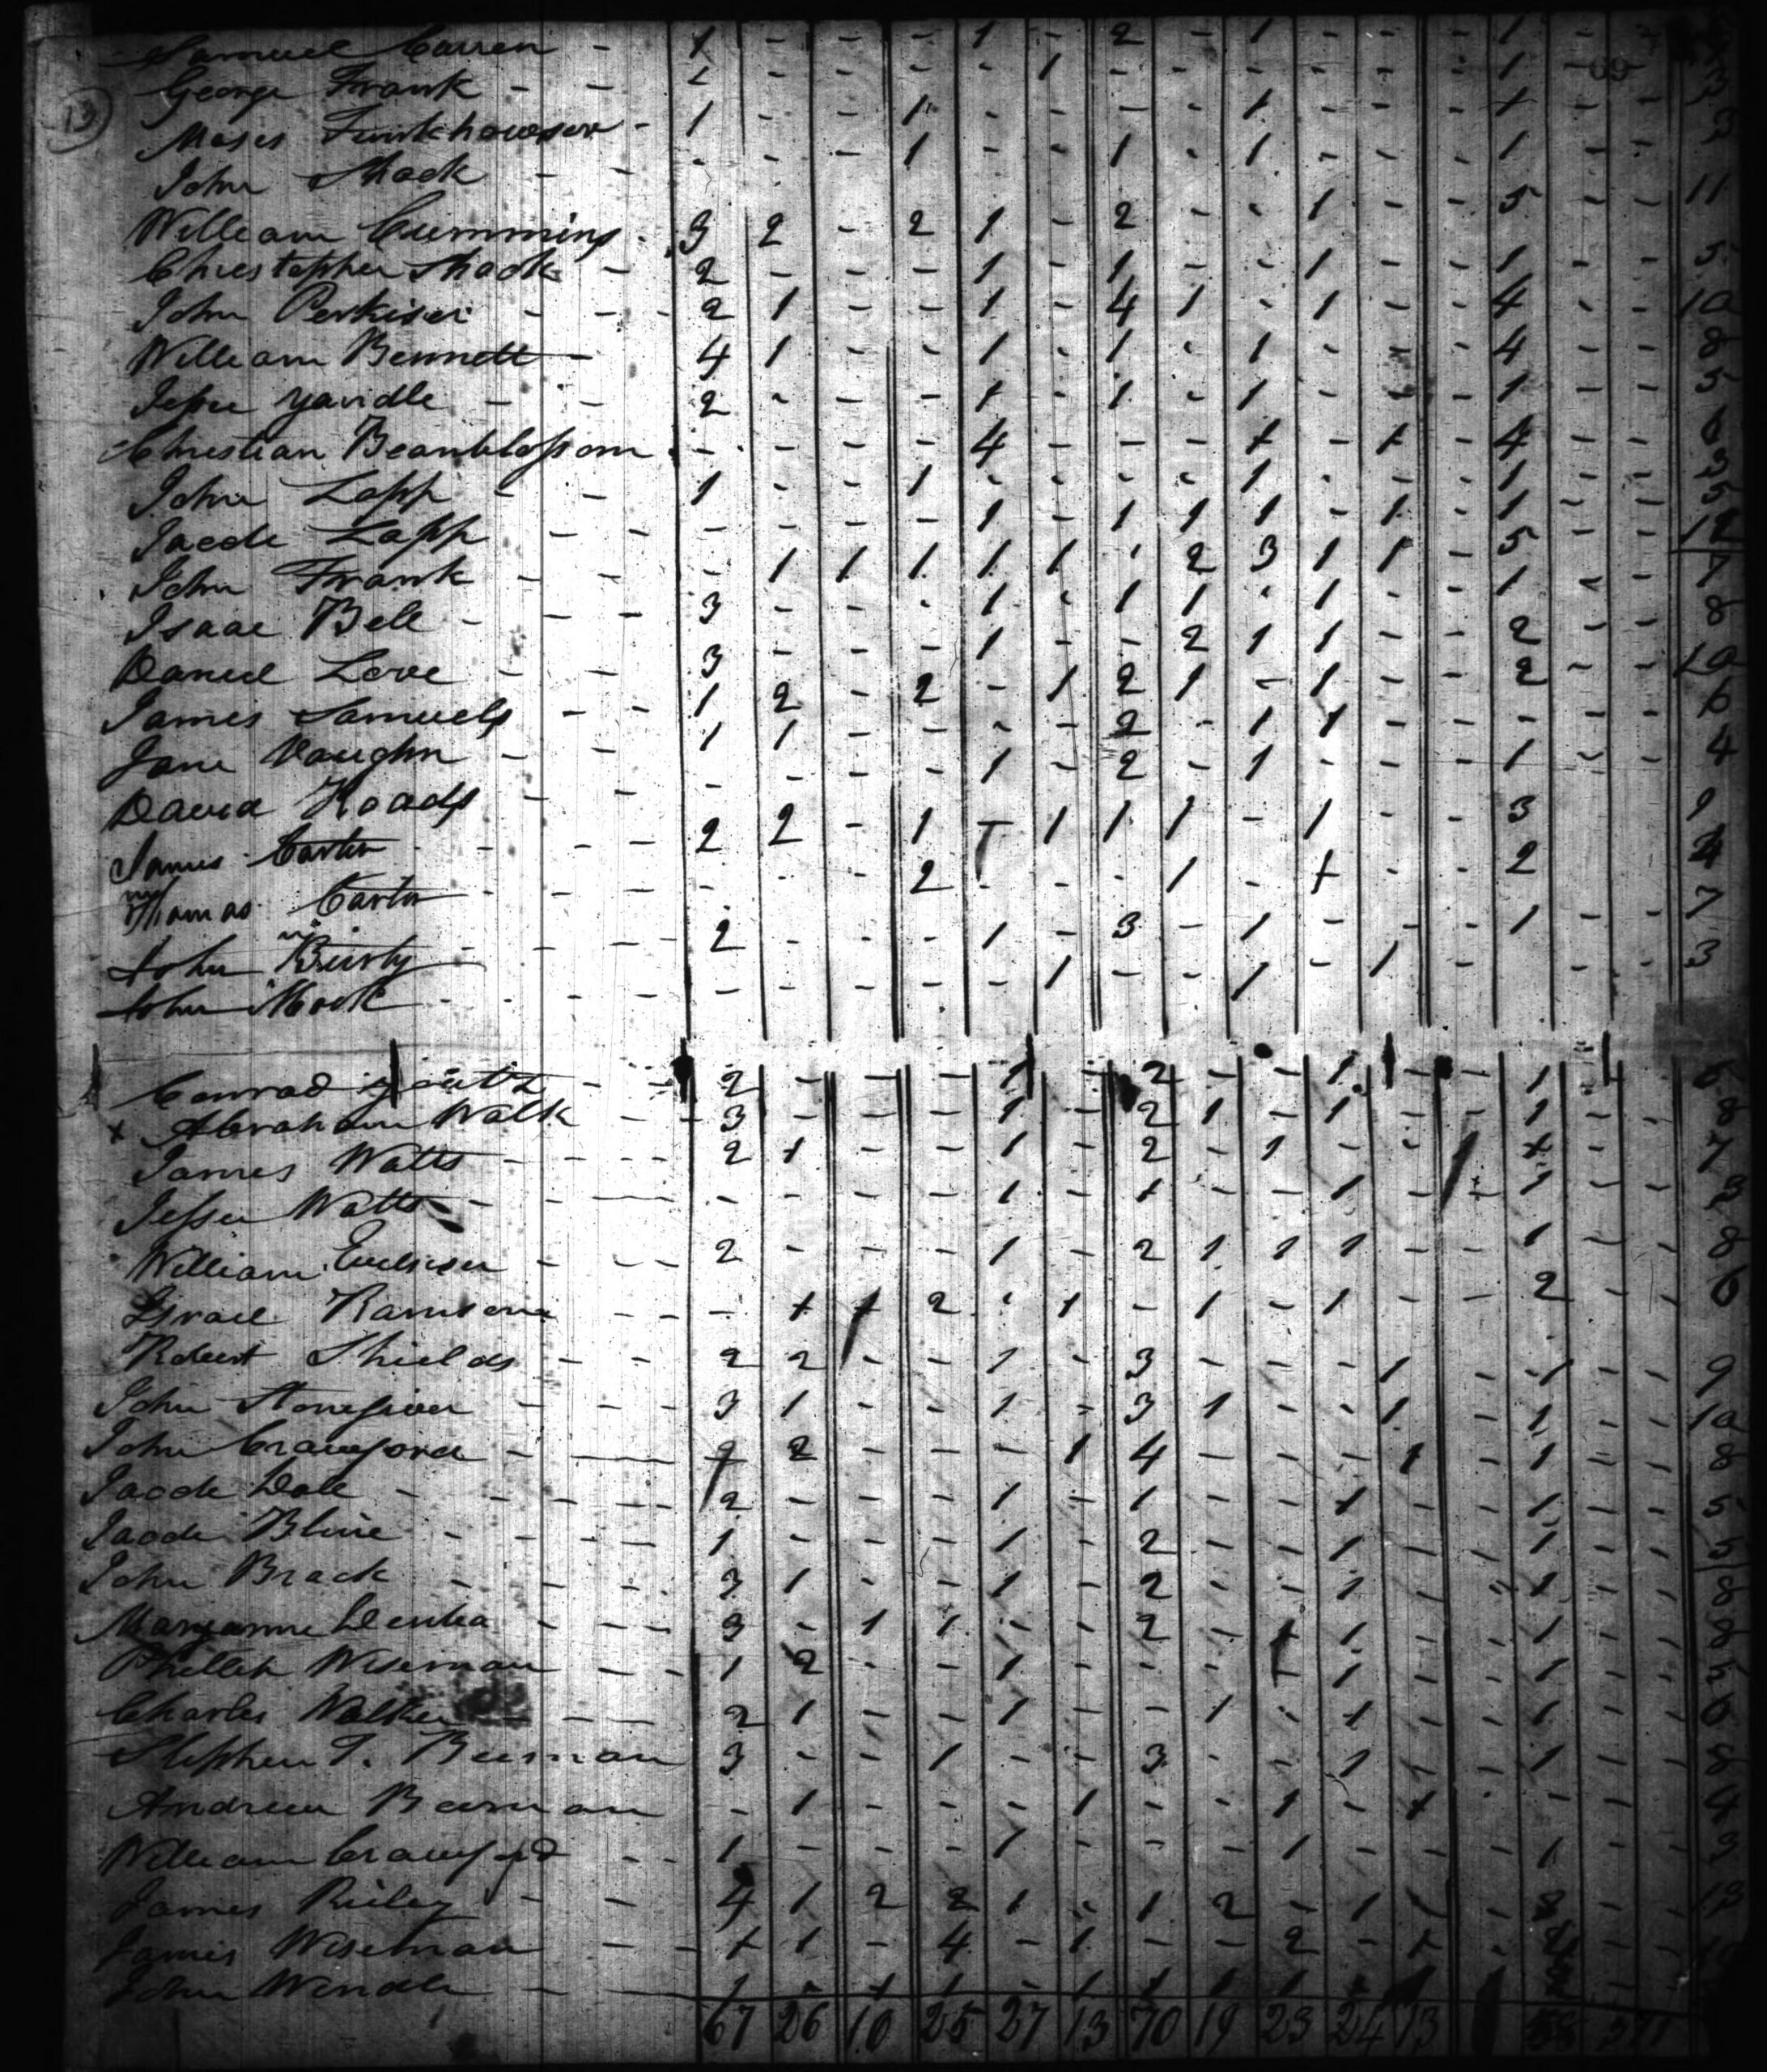 Samuel Carren - 1 - - - 1 - 2 - 1 - - - 1 - -
13 George Frank - - 2 - - - - 1 - - - - - - 1 - - 3
Moses Funkhowser - 1 - - 1 - - - - 1 - - - 1 - - 3
John Shock - - - - - 1 - - 1 - 1 - - - 1 - -
William Cummins - 3 2 - 2 1 - 2 - - 1 - - 5 - - 11
Christopher Shock - 2 - - - 1 - 1 - - 1 - - 1 - - 5
John Perkiser - - - 2 1 - - 1 - 4 1 - 1 - - 4 - - 10
William Bennett - 4 1 - - 1 - 1 - 1 - - - 4 - - 8
Jesse Yandle - - 2 - - - 1 - 1 - 1 - - - 1 - - 5
Christian Beanblossom - - - - 4 - - - 1 - 1 - 4 - -
John Lopp - - 1 - - 1 - - - - 1 - - - 1 - - 3
Jacob Lopp - - - - - - 1 - 1 1 1 - 1 - 1 - - 5
John Frank - - - 1 1 1 1 1 - 2 3 1 1 - 5 - - 12
Isaac Bell - - - 3 - - - 1 - 1 1 - 1 - - 1 - - 7
Daniel Love - - 3 - - - 1 - - 2 1 1 - - 2 - - 8
James Samuels - - 1 2 - 2 - 1 2 1 - 1 - - 2 - - 10
Jane Vaughn - 1 1 - - - - 2 - 1 1 - - - - - 6
David Roads - - - - - - 1 - 2 - 1 - - - 1 - - 4
James Carter - - - 2 2 - 1 - 1 1 1 - 1 - - 3 - - 9
Thomas Carter - - - - - - 2 - - - 1 - 1 - - 2 - - 4
John Birsty - - - - 2 - - - 1 - 3 - 1 - - - 1 - - 7
John Mock - - - - - - - - - 1 - - 1 - 1 - - - - 3
Conrad - - 2 - - - 1 - 2 - - 1 - - 1 - - 6
x Abraham Walk - - 3 - - - 1 - 2 1 - 1 - - 1 - - 8
James Watts - - - - 2 1 - - 1 - 2 - 1 - - - 1 - - 7
Jesse Watts - - - - - - - 1 - 1 - - 1 - - 1 - - 3
William - - - 2 - - - 1 - 2 1 1 1 - - 1 - - 8
Israel Ramsom - - - 1 1 2 - 1 - 1 - 1 - - 2 - - 6
Robert Shields - - 2 2 - - 1 - 3 - - - 1 - 1 - - 9
John - - - 3 1 - - 1 - 3 1 - - 1 - 1 - - 10
John Crawford - - 2 - - - 1 4 - - - 1 - 1 - - 8
Jacob Dale - - - - 2 - - - 1 - 1 - - 1 - - 1 - - 5
Jacob Bline - - - - 1 - - - 1 - 2 - - 1 - - 1 - - 5
John Brack - - - 3 1 - - 1 - 2 - - 1 - - 1 - - 8
Maryanne - - - 3 - 1 1 - - 2 - 1 1 - - 1 - - 8
Phillip Wiseman - - 1 2 - - 1 - - - - 1 - - 1 - - 5
Charles Walker - - 2 1 - - 1 - - 1 - 1 - - 1 - - 6
Stephen T. Beeman 3 - - 1 - - 3 - - 1 - - 1 - - 8
Andrew Beeman - 1 - - - 1 - - 1 - 1 - - - - 4
William Crawford - - 1 - - - 1 - - - 1 - - - 1 - - 3
James Riley - - 4 1 2 2 1 - 1 2 - 1 - - -
James Wiseman - - - 1 1 - 4 - 1 - - 2 - 1 - -
John Wendle - - 1 - 1 1 - 1 1 1 1 - -
67 26 10 25 27 13 70 19 23 24 13